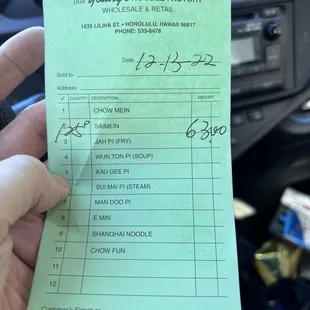 DBA Young's NOODLE FACTORY
WHOLESALE & RETAIL
1635 LILIHA ST. • HONOLULU, HAWAII 96817
PHONE: 533-6478
12-13-22
Sold to
Address
✓ QUANTITY DESCRIPTION AMOUNT
1 CHOW MEIN
125# SAIMEIN 63.00
3 JAH PI (FRY)
4 WUN TON PI (SOUP)
5 KAU GEE PI
SUI MAI PI (STEAM)
7 MAN DOO PI
8 E MIN
9 SHANGHAI NOODLE
10 CHOW FUN
11
12
Customer's Signature